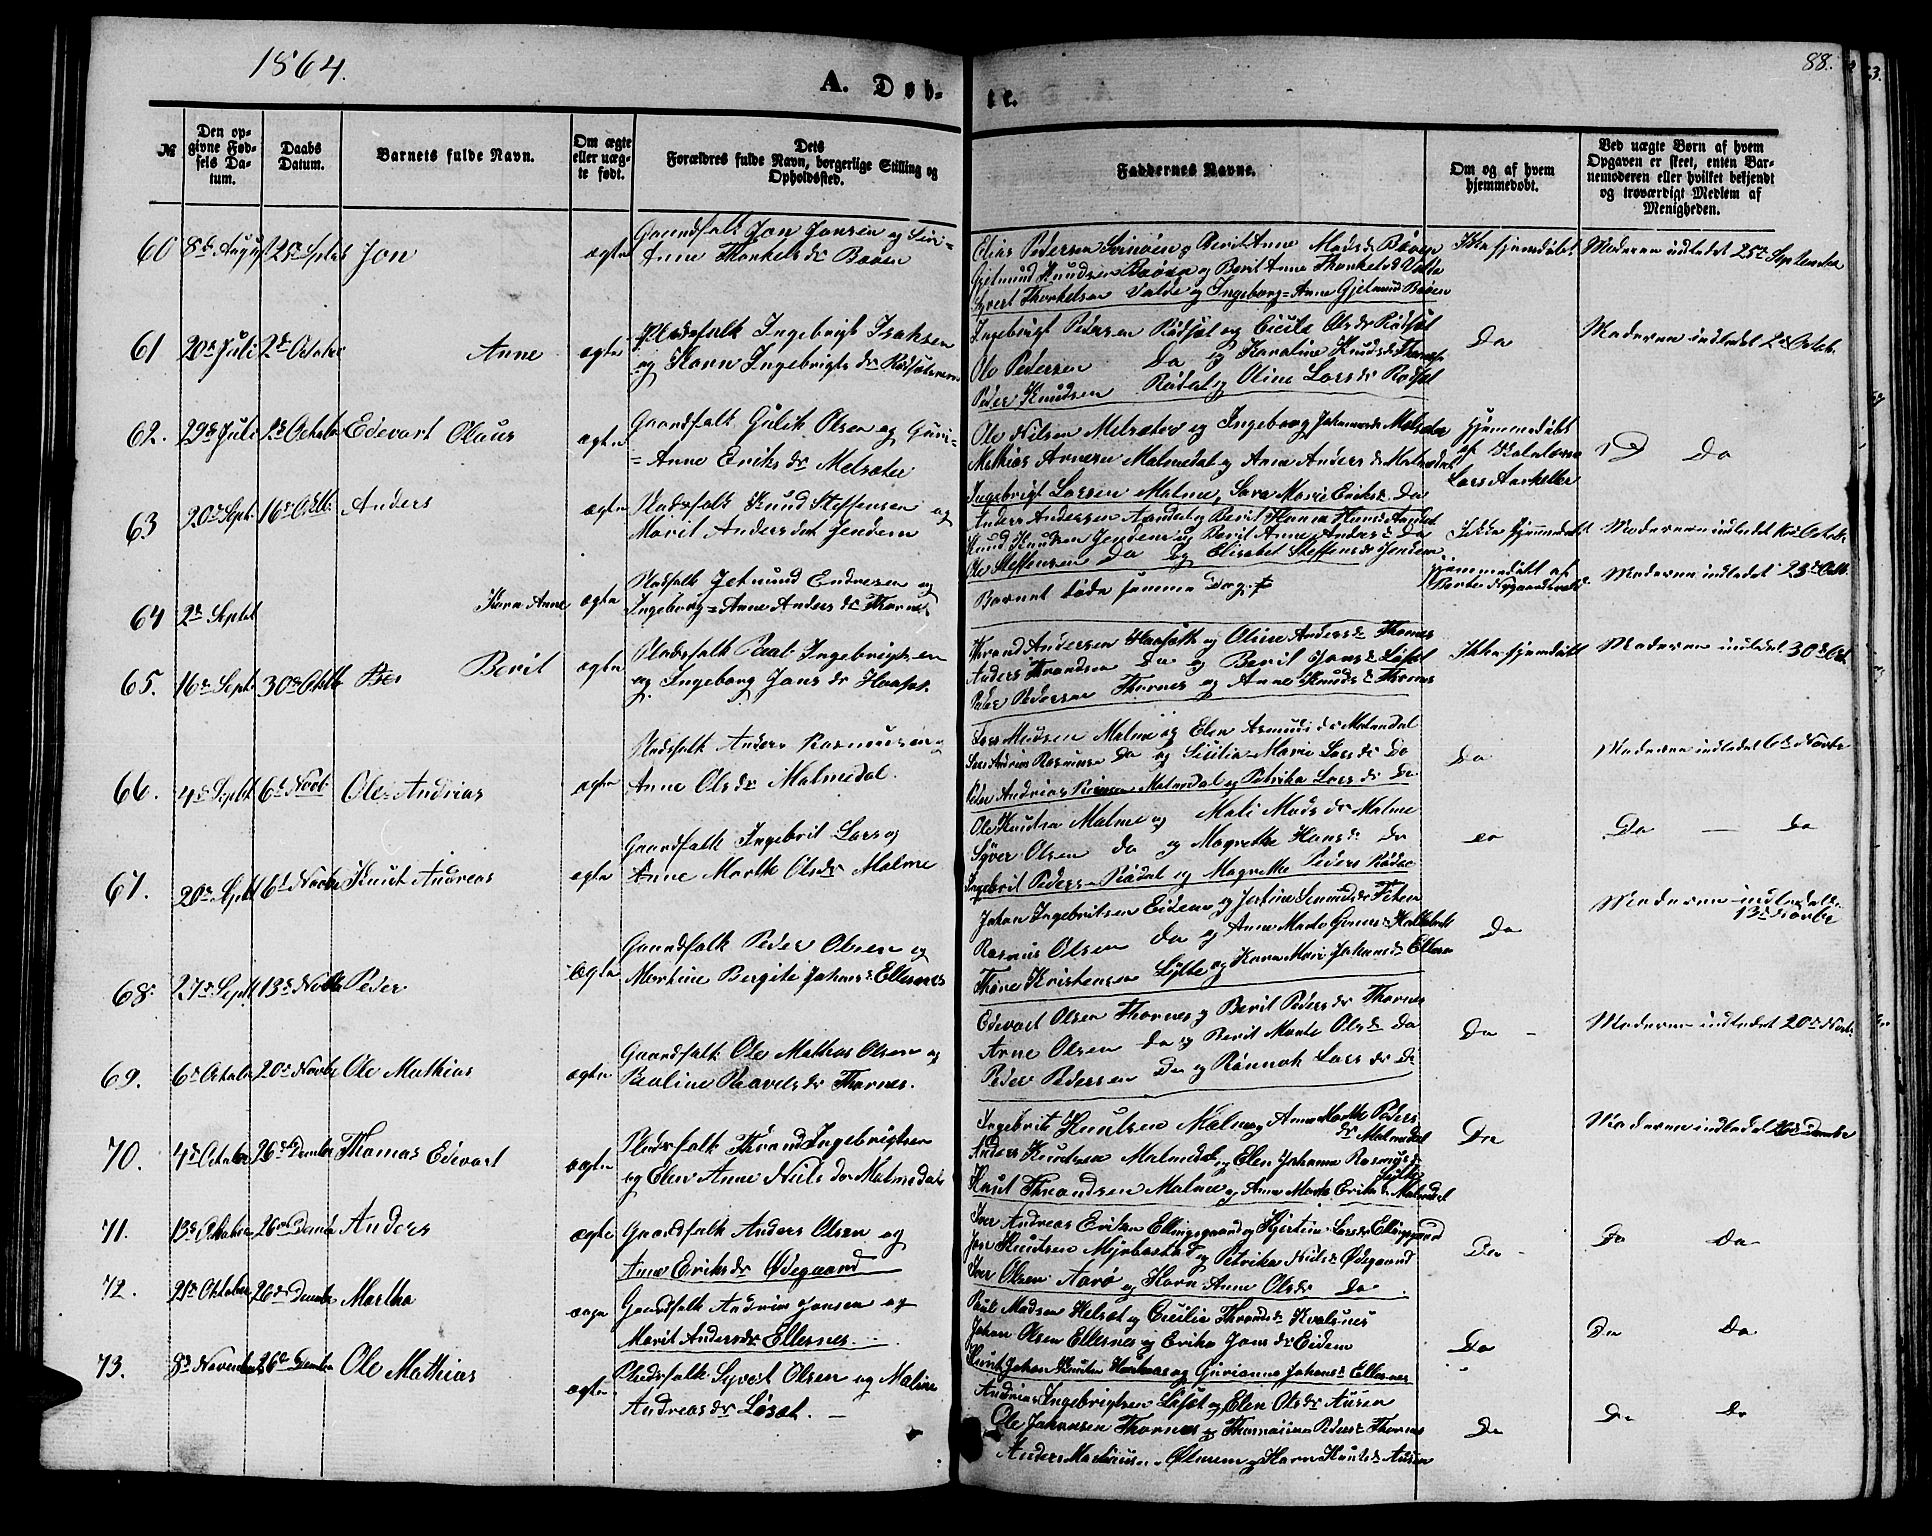 1864.
A. Døb-
te.
88.
№
Den op-
givne Fød-
sels Da-
tum.
Daabs
Datum.
Barnets fulde Navn.
Om ægte
eller uæg-
te født.
Dets
Forældres fulde Navn, borgerlige Stilling og
Opholdssted.
Faddernes Navne.
Om og af hvem
hjemmedøbt.
Ved uægte Børn af hvem
Opgaven er skeet, enten Bar-
nemoderen eller hvilket bekjendt
og troværdigt Medlem af
Menigheden.
60 8de August 25de Septbr Jon ægte
Gaardfolk Jon Jonsen og Siri-
Anne Thorkelsdr Bøen
Elias Pedersen og Berit Anne Madsdr Bøen
Gjetmund Knudsen Bøen og Berit Anne Thorkelsd Valde
Syvert Thorkelsen Valde og Ingeborg-Anne Gjetmund Bøen
Ikke hjemdøbt Moderen indledet 25de September
61 20de Juli 2de Octobr Anne ægte
Pladsfolk Ingebrigt Isaksen
og Karn Ingebrigtsdr
Ingebrigt Pedersen Rødsæt og Cicile Olsdr Rødsæt
Ole Pedersen Do og Karoline Knudsdr
Peder Knudsen Rødal og Oline Larsdr Rødsæt
Do Moderen indledet 2de Octob.
62. 29de Juli 2de Octobr Edevart Olaus ægte
Gaardfolk Gulik Olsen og Guri-
=Anne Eriksdr Melsæter
Ole Nilsen Melsæter og Ingeborg Melsæter
Mathias Arnesen Malmedal og Anne Andersdr Malmedal
Ingebrigt Larsen Malme, Sara Marie Eriksd. Do
Hjemmedøbt
af
Lars
D Do
63 20de Sept. 16de Octb. Anders ægte
Pladsfolk Knud Steffensen og
Marit Andersdat Jendem
Anders Andersen og Berit Hanna
Knud Knudsen Jendem og Berit Anne Andersd Do
Ole Steffensen Do og Elisabet Steffensdr Jendem
Ikke hjemmedøbt Moderen indledet 16de Octobr
64 2de Septbr Karn Anne ægte
Pladsfolk Jetmund Endresen og
Ingeborg=Anne Andersdr Thornes
Barnet døde samme Dag. †
Hjemmedøbt af
Moderen indledet 23de Octb.
65. 16de Sept. 30de Octbr Berit ægte
Pladsfolk Paul Ingebrigtsen
og Ingeborg Jonsdr
Thrond Andersen og Oline Andersdr Thornes
Anders Throndsen Do og Berit Jonsd Løset
Peder Pedersen Thornes og Anne Knudsd Thornes
Ikke hjemdøbt Moderen indledet 30de Oct.
66. 4de Septbr 6te Novb. Ole Andrias ægte
Pladsfolk Anders Rasmussen og
Anne Olsdr Malmedal.
Lars Madsen Malme og Elen Malmedal
Lars Andreas Rasmussen Do og Sisilia Marie Larsdr Do
Peder Andrias Malmedal og Petrika Larsdr Do
Do Moderen indledet 6te Novbr
67. 20de Septbr 6te Novbr Knut Andreas ægte
Gaardfolk Ingebrit Lars og
Anne Marthe Olsdr Malme
Ole Knutsen Malme og Mali Madsdr Malme
Syver Olsen do og Magrethe Hansd. Do
Ingebrit Peders Rødal og Magrethe Peders
Do — do
68. 27de Septbr 13de Novbr Peder ægte
Gaardfolk Peder Olsen og
Martine Bergite Johansd Ellesnes
Johan Ingebritsen Eidem og
Rasmus Olsen Do og Anne Marte
Thore Kristensen Lylte og Karn Mari Johansdr Ellesnes
Do Moderen indledet
13de Novbr
69. 6te Octobr 20de Novbr Ole Mathias ægte
Gaardfolk Ole Mathias Olsen og
Beoline Paavelsdr Thornes.
Edevart Olsen Thornes og Berit Pedersdr Thornes
Arne Olsen Do og Berit Marte Olsd Do
Peder Pedersen Do og Rønnok Larsdr Do
Do - Moderen indledet 20de Novb.
70. 4de Octobr 26de Decmbr Thomas Edevart ægte
Pladsfolk Thrond Ingebrigtsen
og Elen Anne Nilsdr Malmedal
Ingebrit Knutsen Malme og Anne Marthe Peders
dr Malmedal
Anders Knutsen Malmedal og Elen Johanna Rasmusd.
Lylte
Knut Throndsen Malme og Anne Marte Eriksd Malmedal
Do Moderen indledet
71. 13de Octobr 26de Decmbr Anders ægte
Gaardfolk Anders Olsen og
Ane Eriksdr Ødegaard
Iver Andreas Eriksen Ellingsgaard og Kjerstine Larsdr Ellingsgaard
Jon Knutsen Myrbostad og Petrika Nilsd Ødegaard
Iver Olsen Aarø og Karn Anne Olsdr Do
Do - Do Do
72. 21de Oktober 26de Decmbr Martha ægte
Gaardfolk Andrias Jonsen og
Marit Andersdr Ellesnes.
Paul Madsen Helset og Cicilia Thronds Kvalsnes
Johan Olsen Ellesnes og Erika Jonsdr Eidem
Knut Johan Knutsen og Gurianne Johansd Ellesnes
Do Do Do
73. 8de November 26de Decmbr Ole Mathias ægte
Pladsfolk Syvert Olsen og Maline
Andreasdr Løset. —
Andrias Ingebrigtsen Løset og Elen Olsdr Ausen
Ole Johansen Thornes og Thomasine Pedersd Thornes
Anders Mathiasen og Karn Knutsd Ausen
Do Do Do